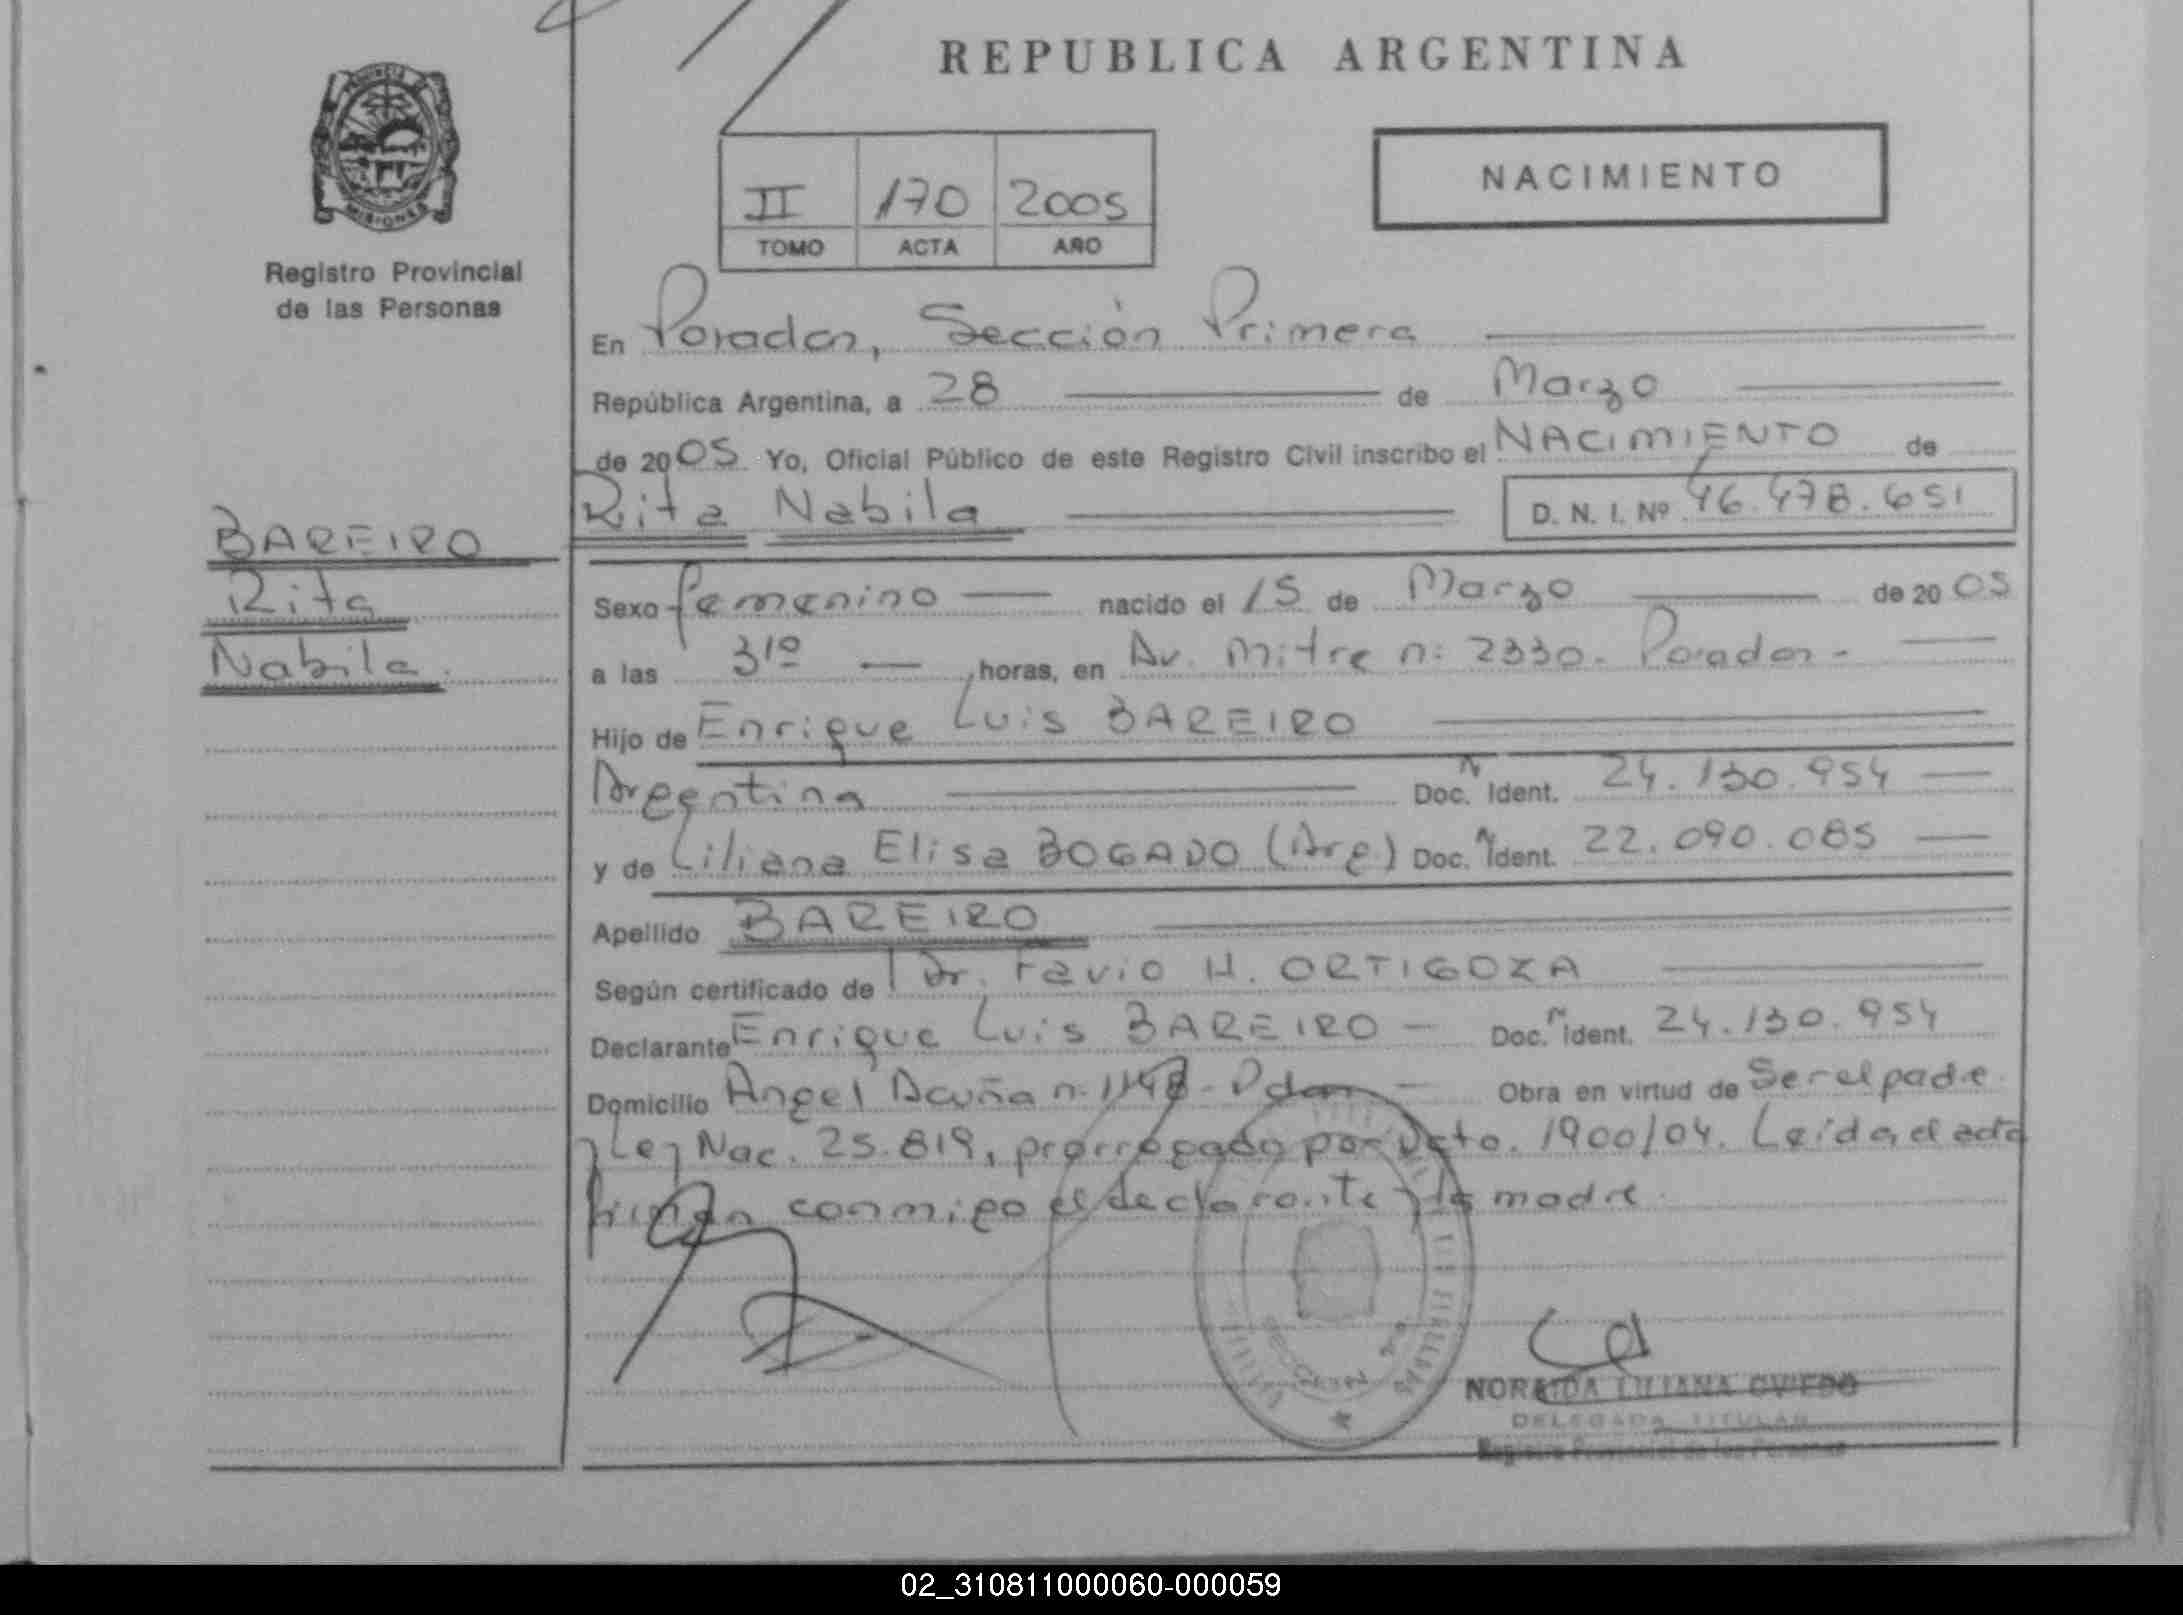 REPUBLICA ARGENTINA
PROVINCIA DE
MISIONES
Registro Provincial
de las Personas
NACIMIENTO
II 170 2005
TOMO ACTA AÑO
En Posadas, Sección Primera
República Argentina, a 28 de Marzo
de 2005 Yo, Oficial Público de este Registro Civil inscribo el NACIMIENTO de
Rita Nabila D. N. I. Nº 46.478.651
BAREIRO
Rita
Nabila
Sexo femenino nacido el 15 de Marzo de 2005
a las 31º horas, en Av. Mitre n: 2330. Posadas.
Hijo de Enrique Luis BAREIRO
Argentina Doc. Ident. 24.130.954
y de Liliana Elisa BOGADO (Arg.) Doc. Ident. 22.090.085
Apellido BAREIRO
Según certificado de Dr. Favio H. ORTIGOZA
Declarante Enrique Luis BAREIRO Doc. Ident. 24.130.954
Domicilio Angel Acuña n. 1148 - Pdas Obra en virtud de Ser el padre
y Ley Nac. 25.819, prorrogado por Dcto. 1900/04. Leida el acta
firman conmigo el declarante y la madre
NORAIDA LILIANA OVIEDO
DELEGADA TITULAR
Registro Provincial de las Personas
02_310811000060-000059